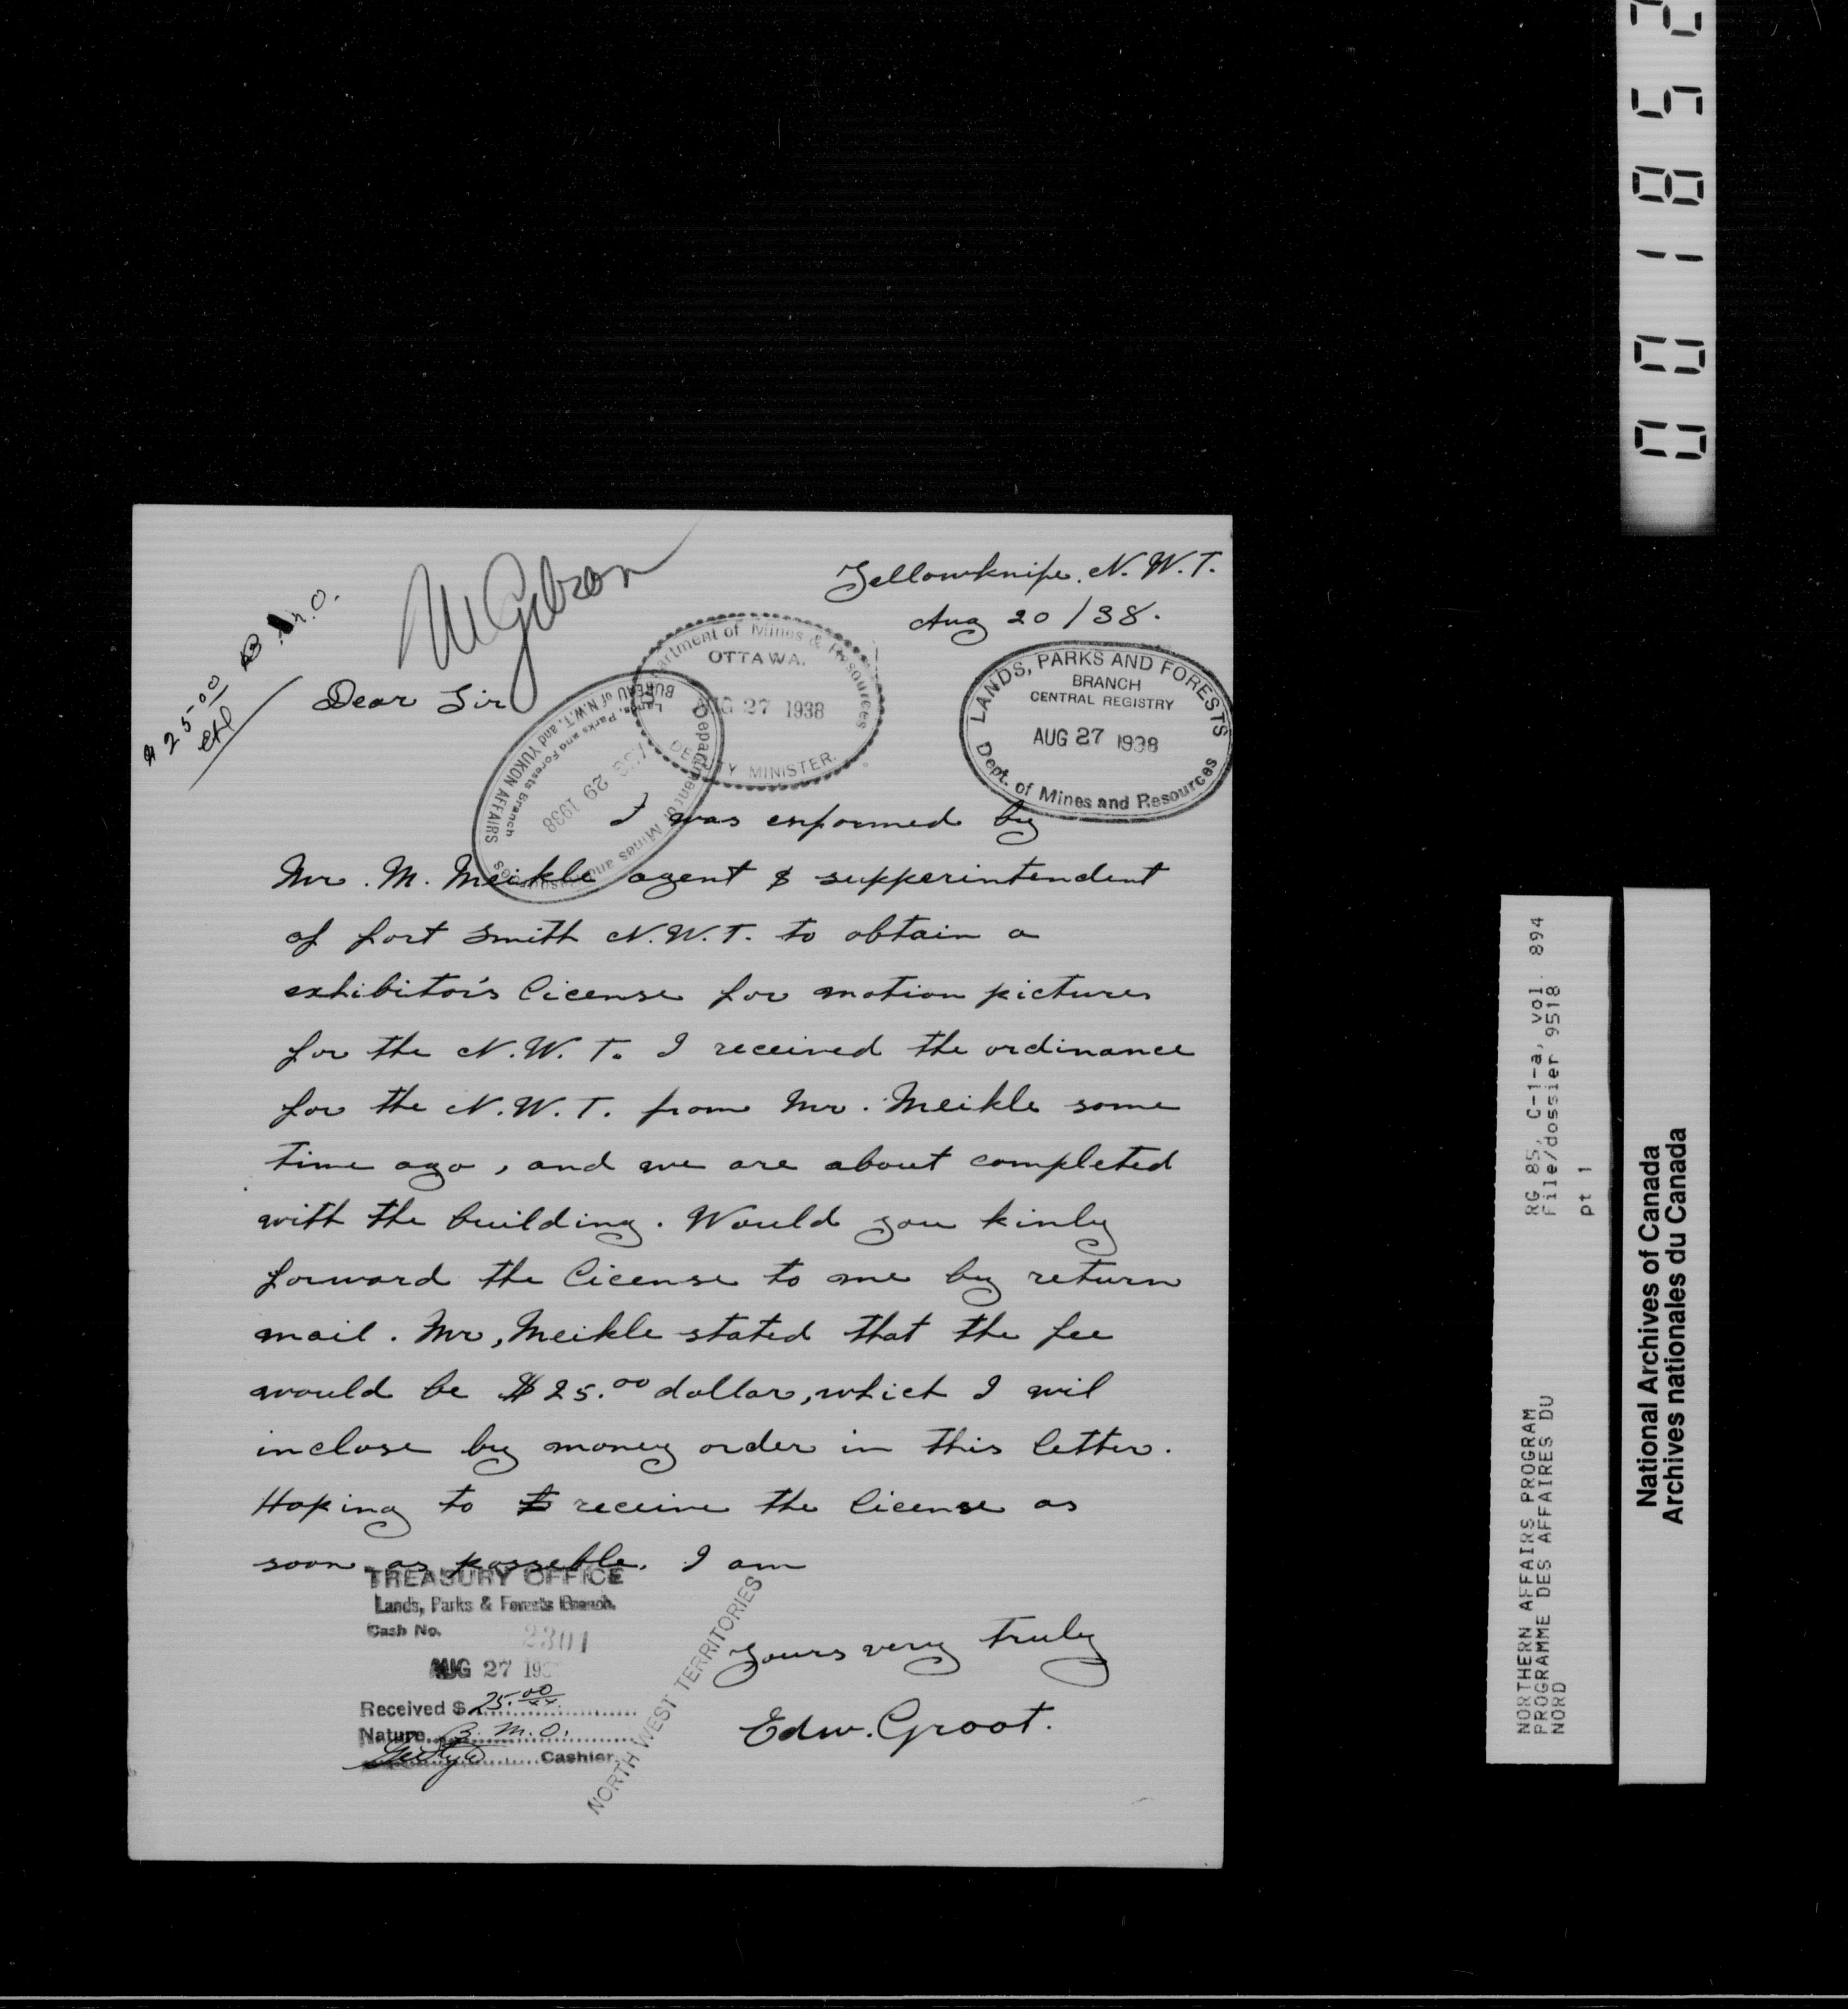 Yellowknife. N. W. T.
Aug 20 / 38.
$25.00 B.M.O.
Dear Sir
Department of Mines & Resources
OTTAWA.
AUG 27 1938
DEPUTY MINISTER.
LANDS, PARKS AND FORESTS
BRANCH
CENTRAL REGISTRY
AUG 27 1938
Dept. of Mines and Resources
Department of Mines and Resources
AUG 29 1938
Lands, Parks and Forests Branch
BUREAU of N.W.T. and YUKON AFFAIRS
I was enformed by
Mr. M. Meikle agent & supperintendent
of fort Smith N.W.T. to obtain a
exhibitor's license for motion pictures
for the N.W.T. I received the ordinance
for the N.W.T. from Mr. Meikle some
time ago, and we are about completed
with the building. Would you kinly
forward the license to me by return
mail. Mr, Meikle stated that the fee
would be $25.00 dollar, which I wil
inclose by money order in this letter.
Hoping to receive the license as
soon as posseble. I am
Yours very truly
Edw. Groot.
TREASURY OFFICE
Lands, Parks & Forests Branch.
Cash No. 2301
AUG 27 193
Received $ 25.00
Nature B. M. O.
Cashier.
NORTH WEST TERRITORIES
001852
RG 85, C-1-a, vol. 894
File/dossier 9518
pt 1
NORTHERN AFFAIRS PROGRAM
PROGRAMME DES AFFAIRES DU
NORD
National Archives of Canada
Archives nationales du Canada